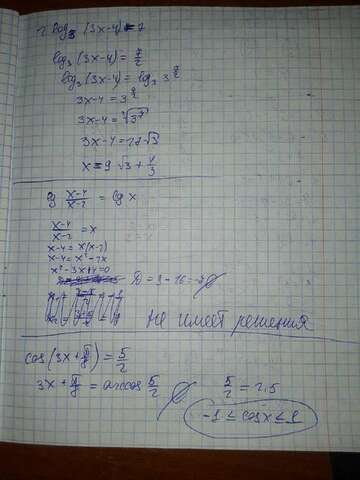 2 log₃ (3x-4) = 7
log₃ (3x-4) = 7/2
log₃ (3x-4) = log₃ 3^(7/2)
3x-4 = 3^(7/2)
3x-4 = √3⁷
3x-4 = 27√3
x = 9√3 + 4/3
lg (x-4)/(x-2) = lg x
(x-4)/(x-2) = x
x-4 = x(x-2)
x-4 = x²-2x
x²-3x+4=0 D = 9-16=-7 ∅
Не имеет решения
cos(3x+π/8) = 5/2
3x + π/8 = arccos 5/2 ∅ 5/2 = 2.5
-1 ≤ cosx ≤ 1